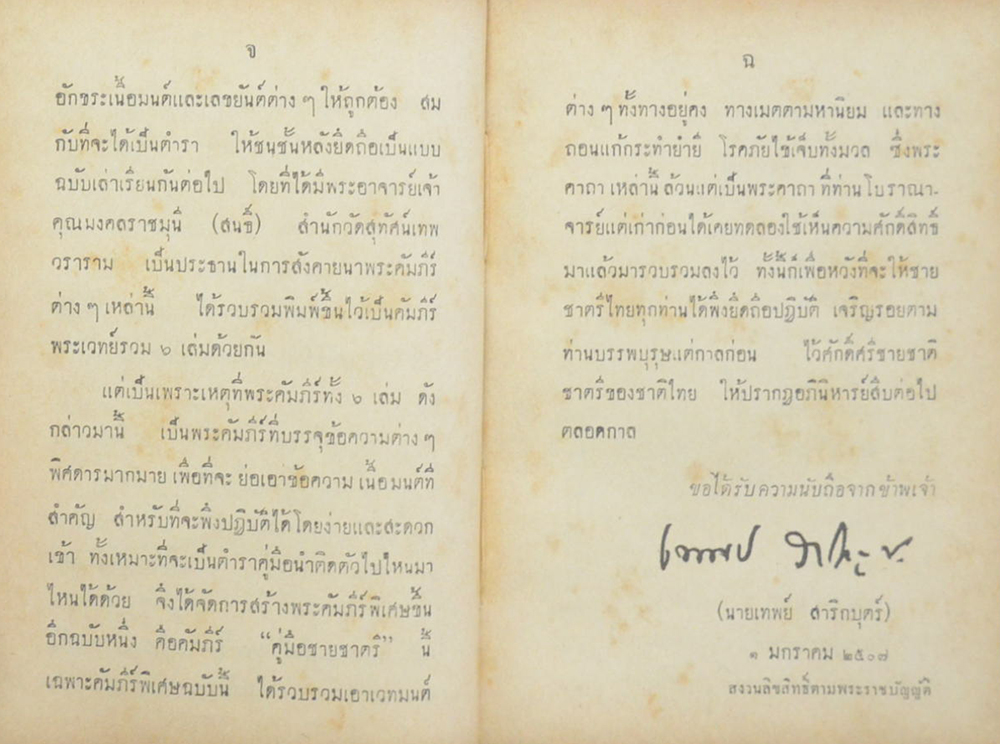 จ
อักขระเนื้อมนต์และเลขยันต์ต่าง ๆ ให้ถูกต้อง สม
กับที่จะได้เป็นตำรา ให้ชนชั้นหลังยึดถือเป็นแบบ
ฉบับเล่าเรียนกันต่อไป โดยที่ได้มีพระอาจารย์เจ้า
คุณมงคลราชมุนี (สนธิ์) สำนักวัดสุทัศน์เทพ
วราราม เป็นประธานในการสังคายนาพระคัมภีร์
ต่าง ๆ เหล่านี้ ได้รวบรวมพิมพ์ขึ้นไว้เป็นคัมภีร์
พระเวทย์รวม ๖ เล่มด้วยกัน
แต่เป็นเพราะเหตุที่พระคัมภีร์ทั้ง ๖ เล่ม ดัง
กล่าวมานี้ เป็นพระคัมภีร์ที่บรรจุข้อความต่าง ๆ
พิศดารมากมาย เพื่อที่จะ ย่อเอาข้อความ เนื้อมนต์ที่
สำคัญ สำหรับที่จะพึงปฏิบัติได้โดยง่ายและสะดวก
เข้า ทั้งเหมาะที่จะเป็นตำราคู่มือนำติดตัวไปไหนมา
ไหนได้ด้วย จึงได้จัดการสร้างพระคัมภีร์พิเศษขึ้น
อีกฉบับหนึ่ง คือคัมภีร์ “คู่มือชายชาตรี” นี้
เฉพาะคัมภีร์พิเศษฉบับนี้ ได้รวบรวมเอาเวทมนต์
ฉ
ต่าง ๆ ทั้งทางอยู่คง ทางเมตตามหานิยม และทาง
ถอนแก้กระทำย่ำยี โรคภัยไข้เจ็บทั้งมวล ซึ่งพระ
คาถา เหล่านี้ ล้วนแต่เป็นพระคาถา ที่ท่าน โบราณา-
จารย์แต่เก่าก่อนได้เคยทดลองใช้เห็นความศักดิ์สิทธิ์
มาแล้วมารวบรวมลงไว้ ทั้งนี้ก็เพื่อหวังที่จะให้ชาย
ชาตรีไทยทุกท่านได้พึงยึดถือปฏิบัติ เจริญรอยตาม
ท่านบรรพบุรุษแต่กาลก่อน ไว้ศักดิ์ศรีชายชาติ
ชาตรีของชาติไทย ให้ปรากฏอภินิหารย์สืบต่อไป
ตลอดกาล
ขอได้รับความนับถือจากข้าพเจ้า
(นายเทพย์ สาริกบุตร์)
๑ มกราคม ๒๕๐๗
สงวนลิขสิทธิ์ตามพระราชบัญญัติ